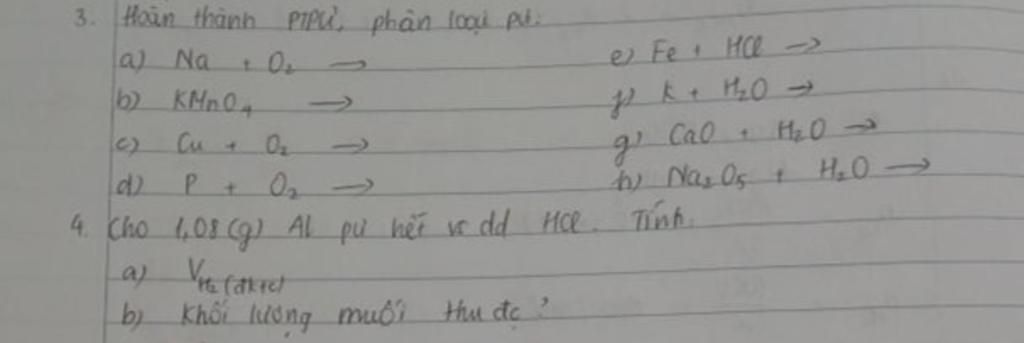 3. Hoàn thành PTPƯ, phân loại pư:
a) Na + O₂ →
b) KMnO₄ →
c) Cu + O₂ →
d) P + O₂ →
e) Fe + HCl →
f) K + H₂O →
g) CaO + H₂O →
h) Na₂O₅ + H₂O →
4. Cho 1,08 (g) Al pư hết vs dd HCl. Tính.
a) V H₂ (đktc)
b) Khối lượng muối thu đc ?